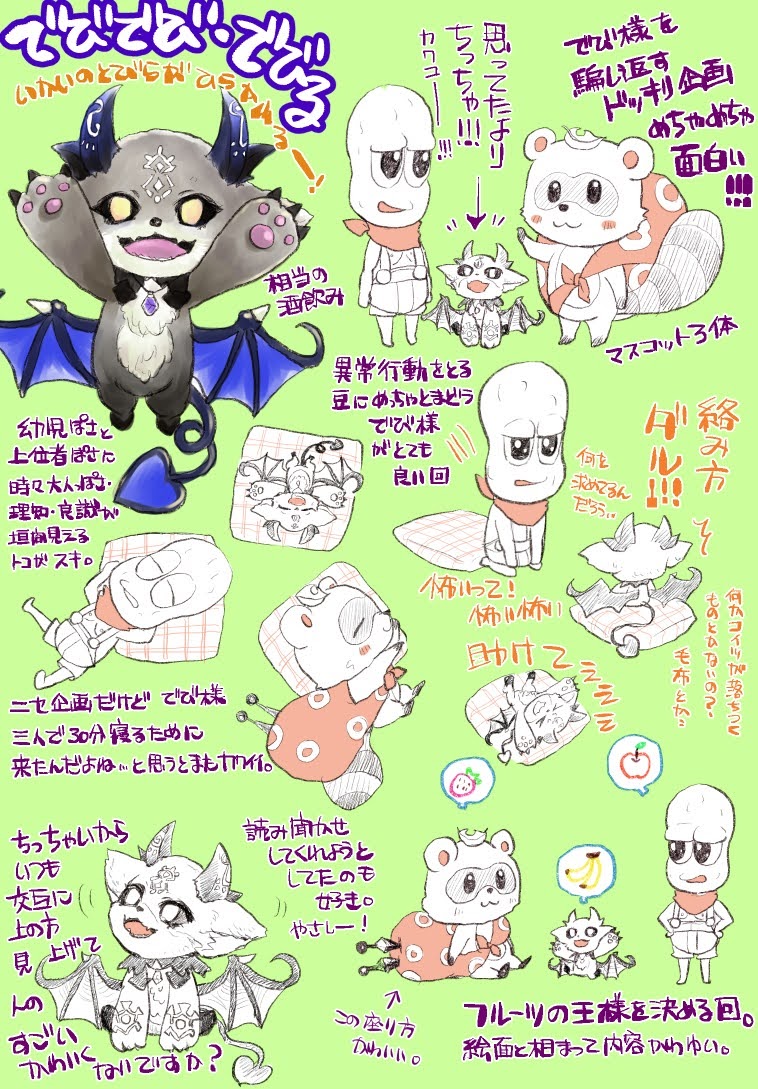 でびでび・でびる
いかいのとびらがひらかれるー!
思ってたより
ちっちゃ!!!
カワユー!!!
でび様を
騙し返す
ドッキリ企画
めちゃめちゃ
面白い
!!!
相当の
酒飲み
マスコット3体
異常行動をとる
豆にめちゃとまどう
でび様
がとても
良い回
幼児ぽさと
上位者ぽさに
時々大人ぽさ・
理知・良識が
垣間見える
トコがスキ。
絡み方
ダル!!!
何を
決めてるん
だろう…
怖いって!
怖い怖い
助けてぇぇぇぇ
何かコイツが落ちつく
ものとかないの?
毛布とか?
ニセ企画だけど でび様
三人で30分寝るために
来たんだよねぃと思うとまたカワイイ。
ちっちゃいから
いつも
交互に
上の方
見上げて
んの
すごい
かわいくないですか?
読み聞かせ
してくれようと
してたのも
好き。
やさしー!
この座り方
かわいい。
フルーツの王様を決める回。
絵面と相まって内容かわゆい。